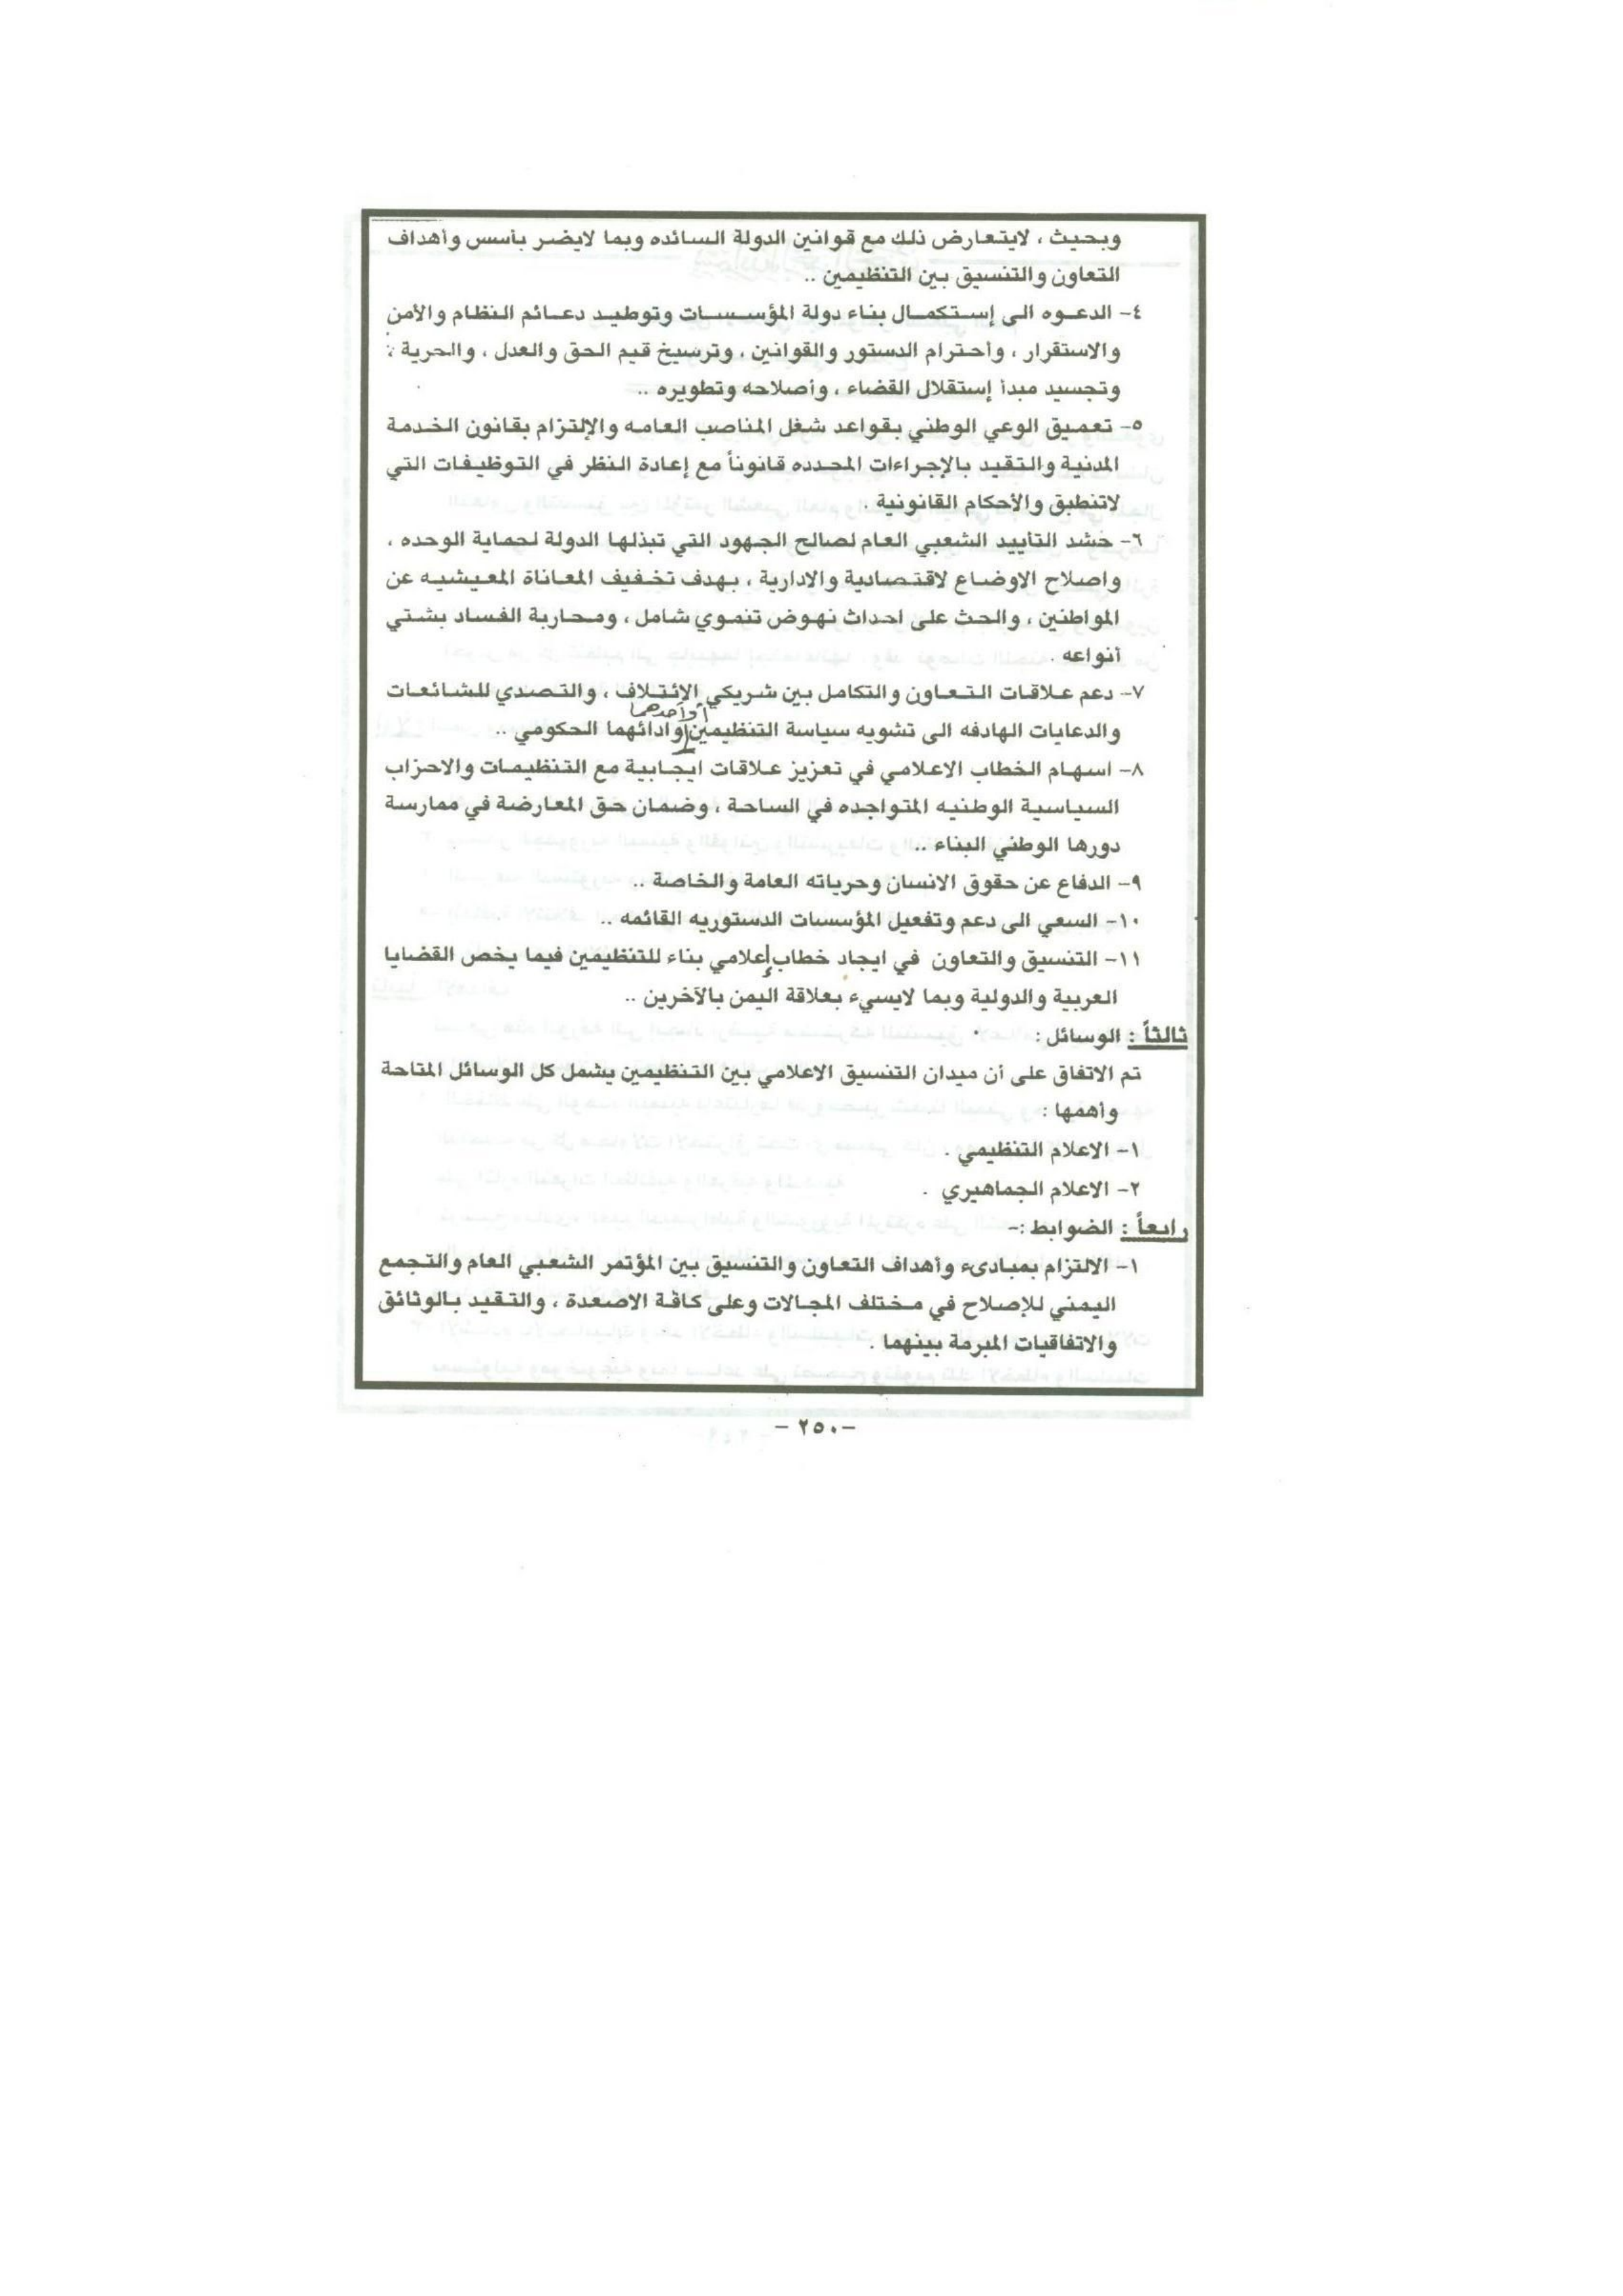 وبحيث ، لايتعارض ذلك مع قوانين الدولة السائده وبما لايضر بأسس وأهداف
التعاون والتنسيق بين التنظيمين ..
٤- الدعوه الى إستكمال بناء دولة المؤسسات وتوطيد دعائم النظام والأمن
والاستقرار ، وأحترام الدستور والقوانين ، وترسيخ قيم الحق والعدل ، والحرية ،
وتجسيد مبدأ إستقلال القضاء ، وأصلاحه وتطويره ..
٥- تعميق الوعي الوطني بقواعد شغل المناصب العامه والإلتزام بقانون الخدمة
المدنية والتقيد بالإجراءات المحدده قانوناً مع إعادة النظر في التوظيفات التي
لاتنطبق والأحكام القانونية .
٦- حشد التأييد الشعبي العام لصالح الجهود التي تبذلها الدولة لحماية الوحده ،
واصلاح الاوضاع لاقتصادية والادارية ، بهدف تخفيف المعاناة المعيشيه عن
المواطنين ، والحث على احداث نهوض تنموي شامل ، ومحاربة الفساد بشتي
أنواعه .
٧- دعم علاقات التعاون والتكامل بين شريكي الإئتلاف ، والتصدي للشائعات
أو أحدهما
والدعايات الهادفه الى تشويه سياسة التنظيمين وادائهما الحكومي ..
٨- اسهام الخطاب الاعلامي في تعزيز علاقات ايجابية مع التنظيمات والاحزاب
السياسية الوطنيه المتواجده في الساحة ، وضمان حق المعارضة في ممارسة
دورها الوطني البناء ..
٩- الدفاع عن حقوق الانسان وحرياته العامة والخاصة ..
١٠- السعي الى دعم وتفعيل المؤسسات الدستوريه القائمه ..
١١- التنسيق والتعاون في ايجاد خطاب إعلامي بناء للتنظيمين فيما يخص القضايا
العربية والدولية وبما لايسيء بعلاقة اليمن بالآخرين ..
ثالثاً : الوسائل :
تم الاتفاق على أن ميدان التنسيق الاعلامي بين التنظيمين يشمل كل الوسائل المتاحة
وأهمها :
١- الاعلام التنظيمي .
٢- الاعلام الجماهيري .
رابعاً : الضوابط :-
١- الالتزام بمبادىء وأهداف التعاون والتنسيق بين المؤتمر الشعبي العام والتجمع
اليمني للإصلاح في مختلف المجالات وعلى كافة الاصعدة ، والتقيد بالوثائق
والاتفاقيات المبرمة بينهما .
-٢٥٠-